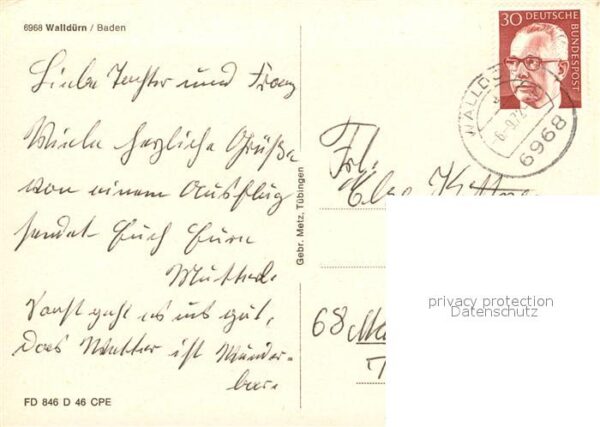 6968 Walldürn / Baden
30 DEUTSCHE BUNDESPOST
WALLDÜRN
-6.-9.72
6968
Liebe Tochter und Franz
Viele herzliche Grüße
von einem Ausflug
sendet Euch Eure
Mutter.
Sonst geht es uns gut,
Das Wetter ist Wunder-
bar.
Gebr. Metz, Tübingen
Frl.
68
privacy protection
Datenschutz
FD 846 D 46 CPE